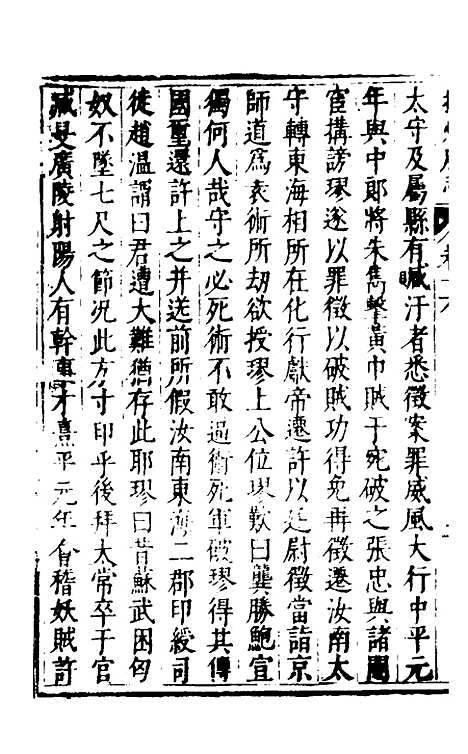 太守及屬縣有贓汙者悉徵案罪威風大行中平元
年與中郎將朱雋擊黃巾賊于宛破之張忠與諸閹
宦搆謗璆遂以罪徵以破賊功得免再徵遷汝南太
守轉東海相所在化行獻帝遷許以廷尉徵當詣京
師道為袁術所刼欲授璆上公位璆歎曰龔勝鮑宣
獨何人哉守之必死術不敢逼術死軍破璆得其傳
國璽還許上之并送前所假汝南東海二郡印綬司
徒趙溫謂曰君遭大難猶存此耶璆曰昔蘇武困匈
奴不墜七尺之節況此方寸印乎後拜太常卒于官
臧旻廣陵射陽人有幹事才熹平元年會稽妖賊許